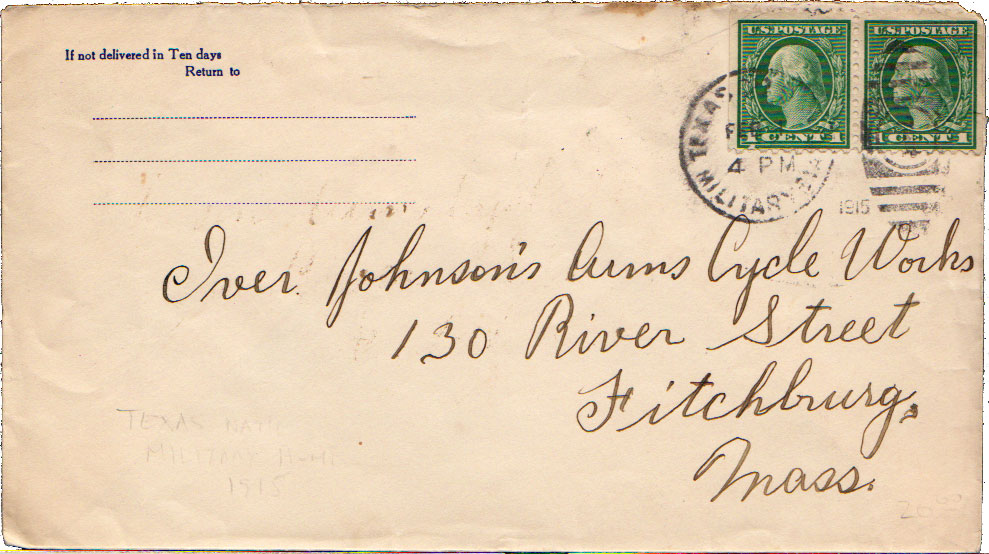 If not delivered in Ten days
Return to
U.S. POSTAGE
1 CENTS 1
U.S. POSTAGE
1 CENTS 1
TEXAS
FEB
4 PM
MILITARY
1915
Iver Johnson's Arms Cycle Works
130 River Street
Fitchburg,
Mass.
TEXAS NAT'L
MILITARY HOME
1915
20.00